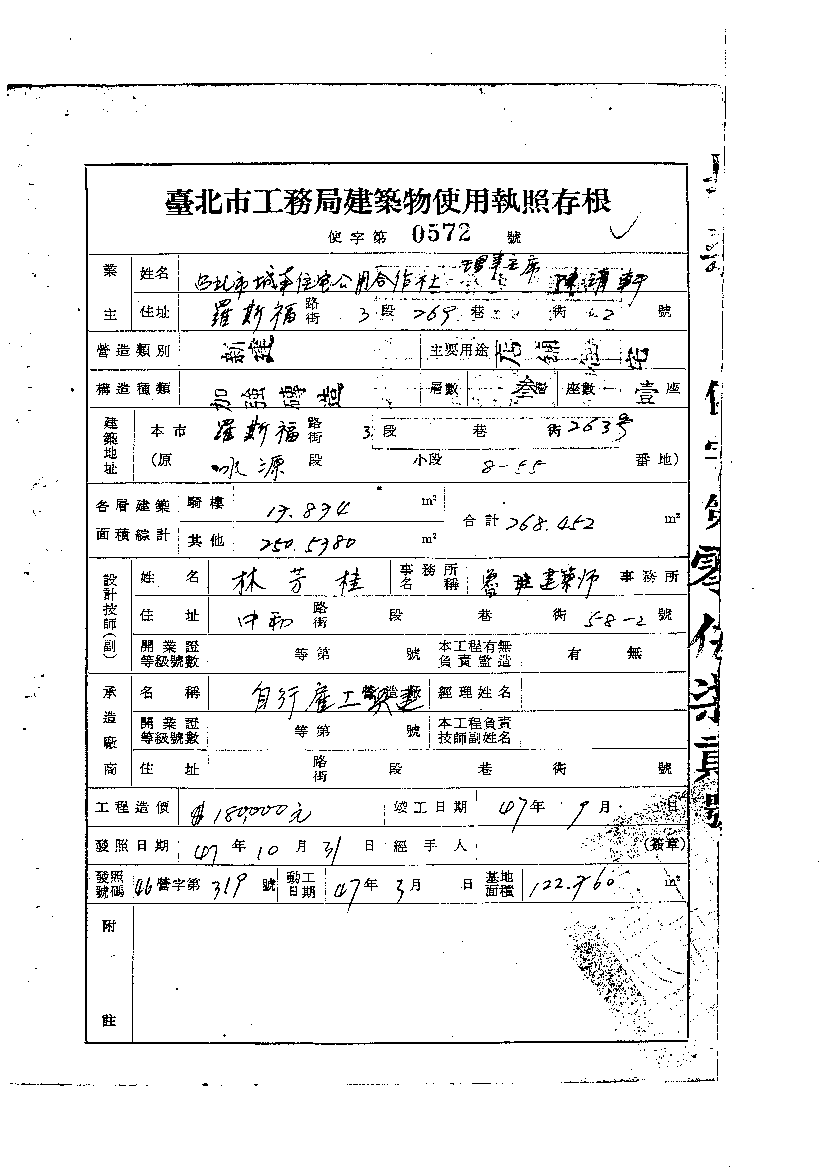 臺北市工務局建築物使用執照存根
使字第 0572 號
業主 姓名 台北市城東住宅公用合作社 理事主席 陳靖軒
住址 羅斯福 路街 3 段 269 巷 衖 號
營造類別 新建 主要用途 店鋪住宅
構造種類 加強磚造 層數 叁層 座數 壹座
建築地址 本市 羅斯福 路街 3 段 巷 衖 263號
(原 段 小段 8-55 番地)
各層建築面積綜計 騎樓 m² 合計 268.452 m²
其他 250.5380 m²
設計技師(副) 姓名 林芳桂 事務所名稱 建築師 事務所
住址 中和 路街 段 巷 衖 58-2 號
開業證等級號數 等第 號 本工程有無負責監造 有 無
承造廠商 名稱 自行雇工 營造廠 經理姓名
開業證等級號數 等第 號 本工程負責技師副姓名
住址 路街 段 巷 衖 號
工程造價 $180,000元 竣工日期 47年 9月 日
發照日期 47年 10月 31日 經手人 (簽章)
發照號碼 46 營字第 319 號 動工日期 47年 3月 日 基地面積 m²
附註